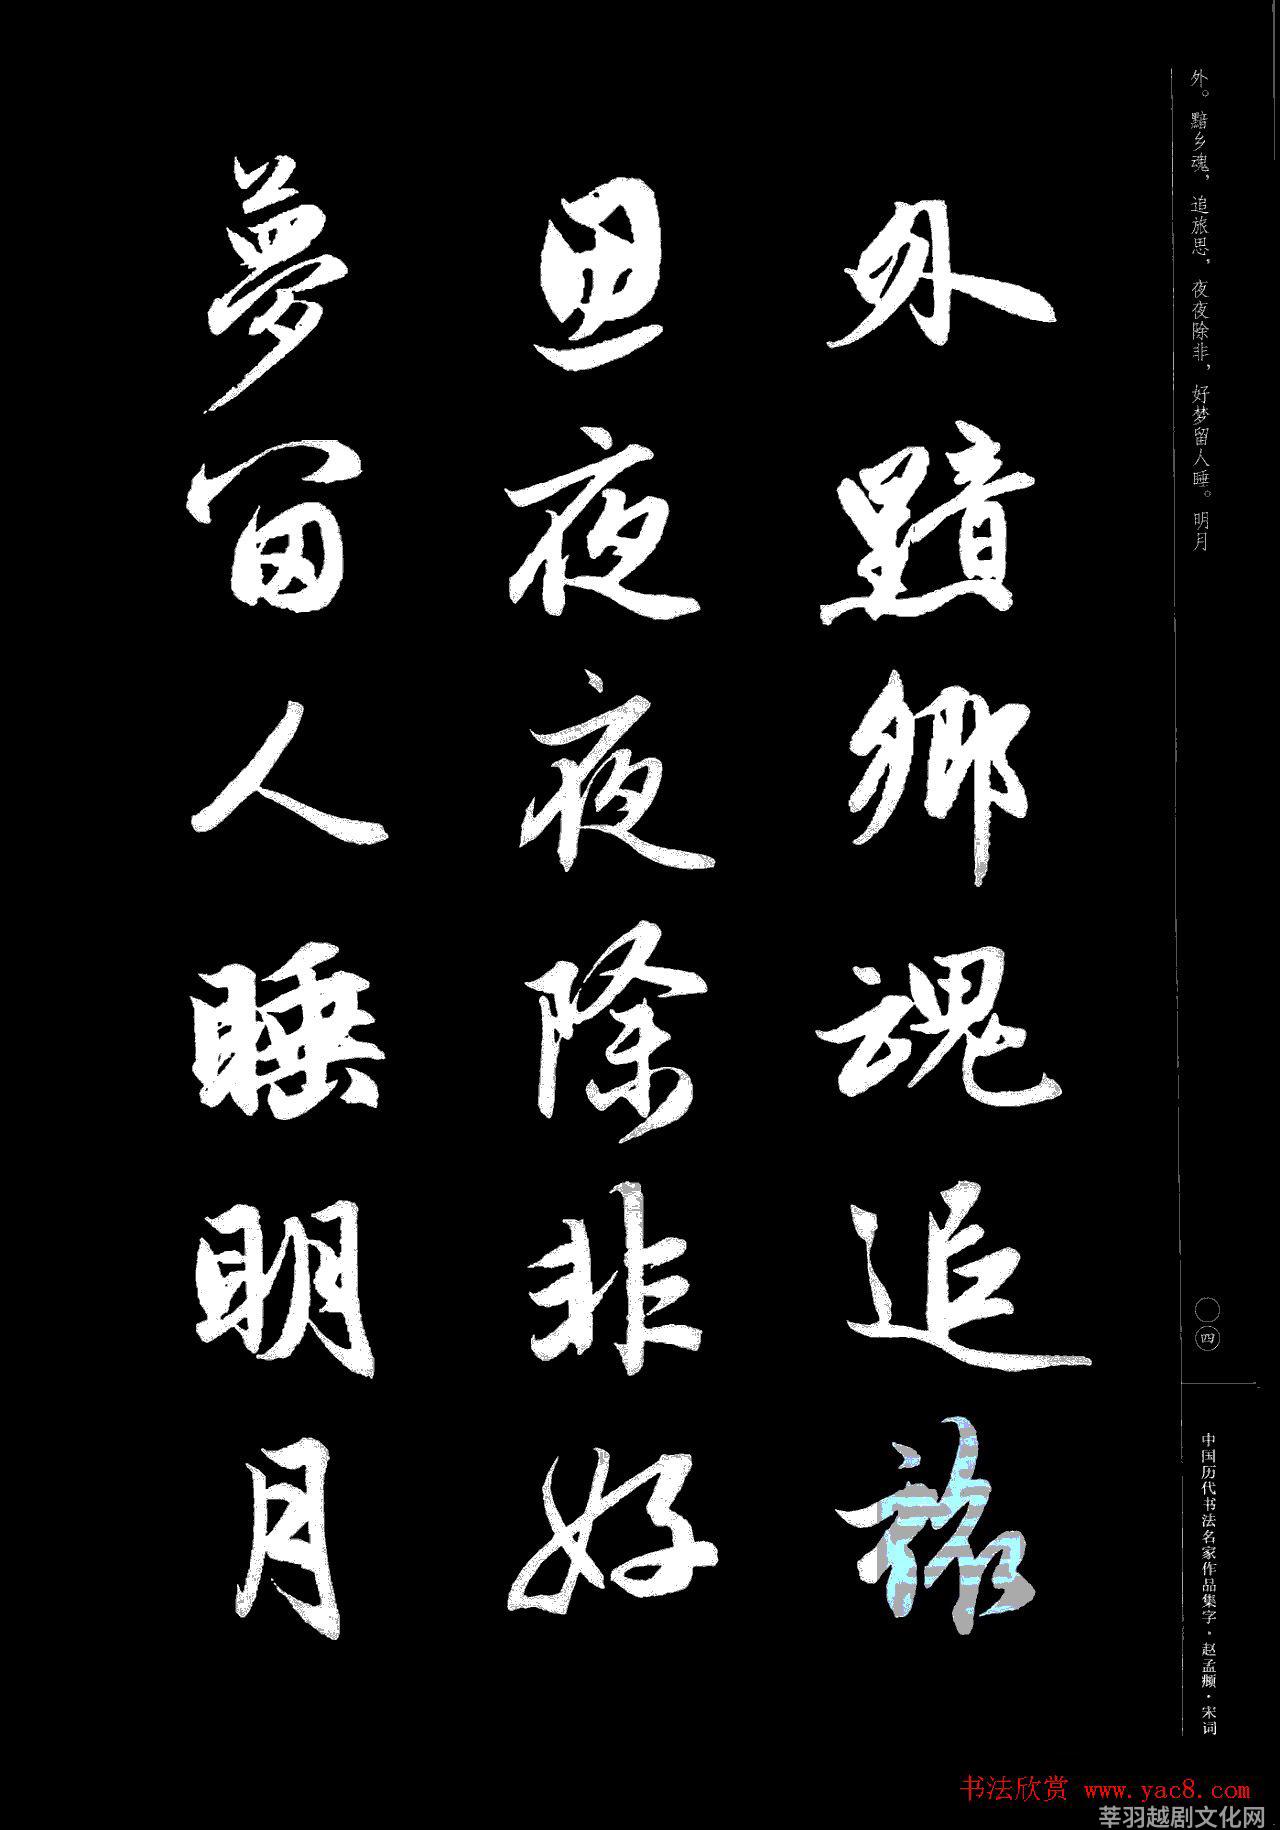 外。黯乡魂，追旅思，夜夜除非，好梦留人睡。明月
外黯鄉魂追旅
思夜夜除非好
夢留人睡明月
〇四
中国历代书法名家作品集字·赵孟頫·宋词
书法欣赏 www.yac8.com
莘羽越剧文化网